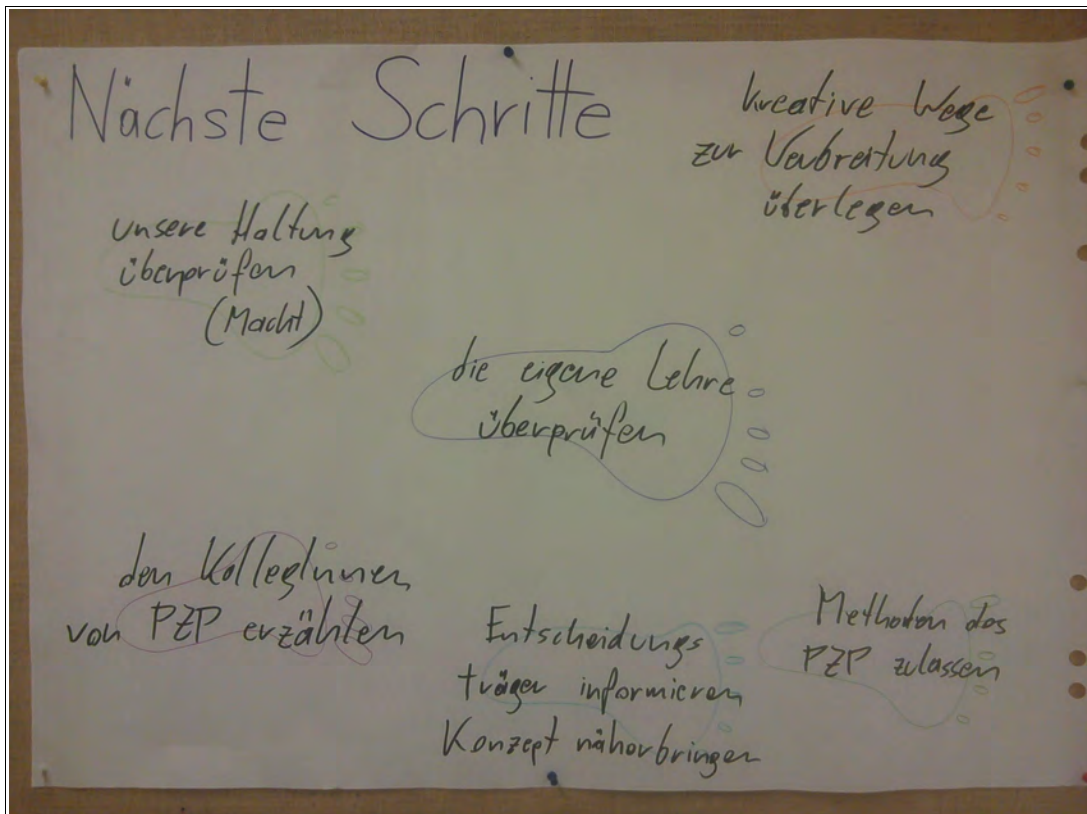 Nächste Schritte
kreative Wege
zur Verbreitung
überlegen
unsere Haltung
überprüfen
(Macht)
die eigene Lehre
überprüfen
den KollegInnen
von PZP erzählen
Entscheidungs
träger informieren
Konzept näherbringen
Methoden des
PZP zulassen